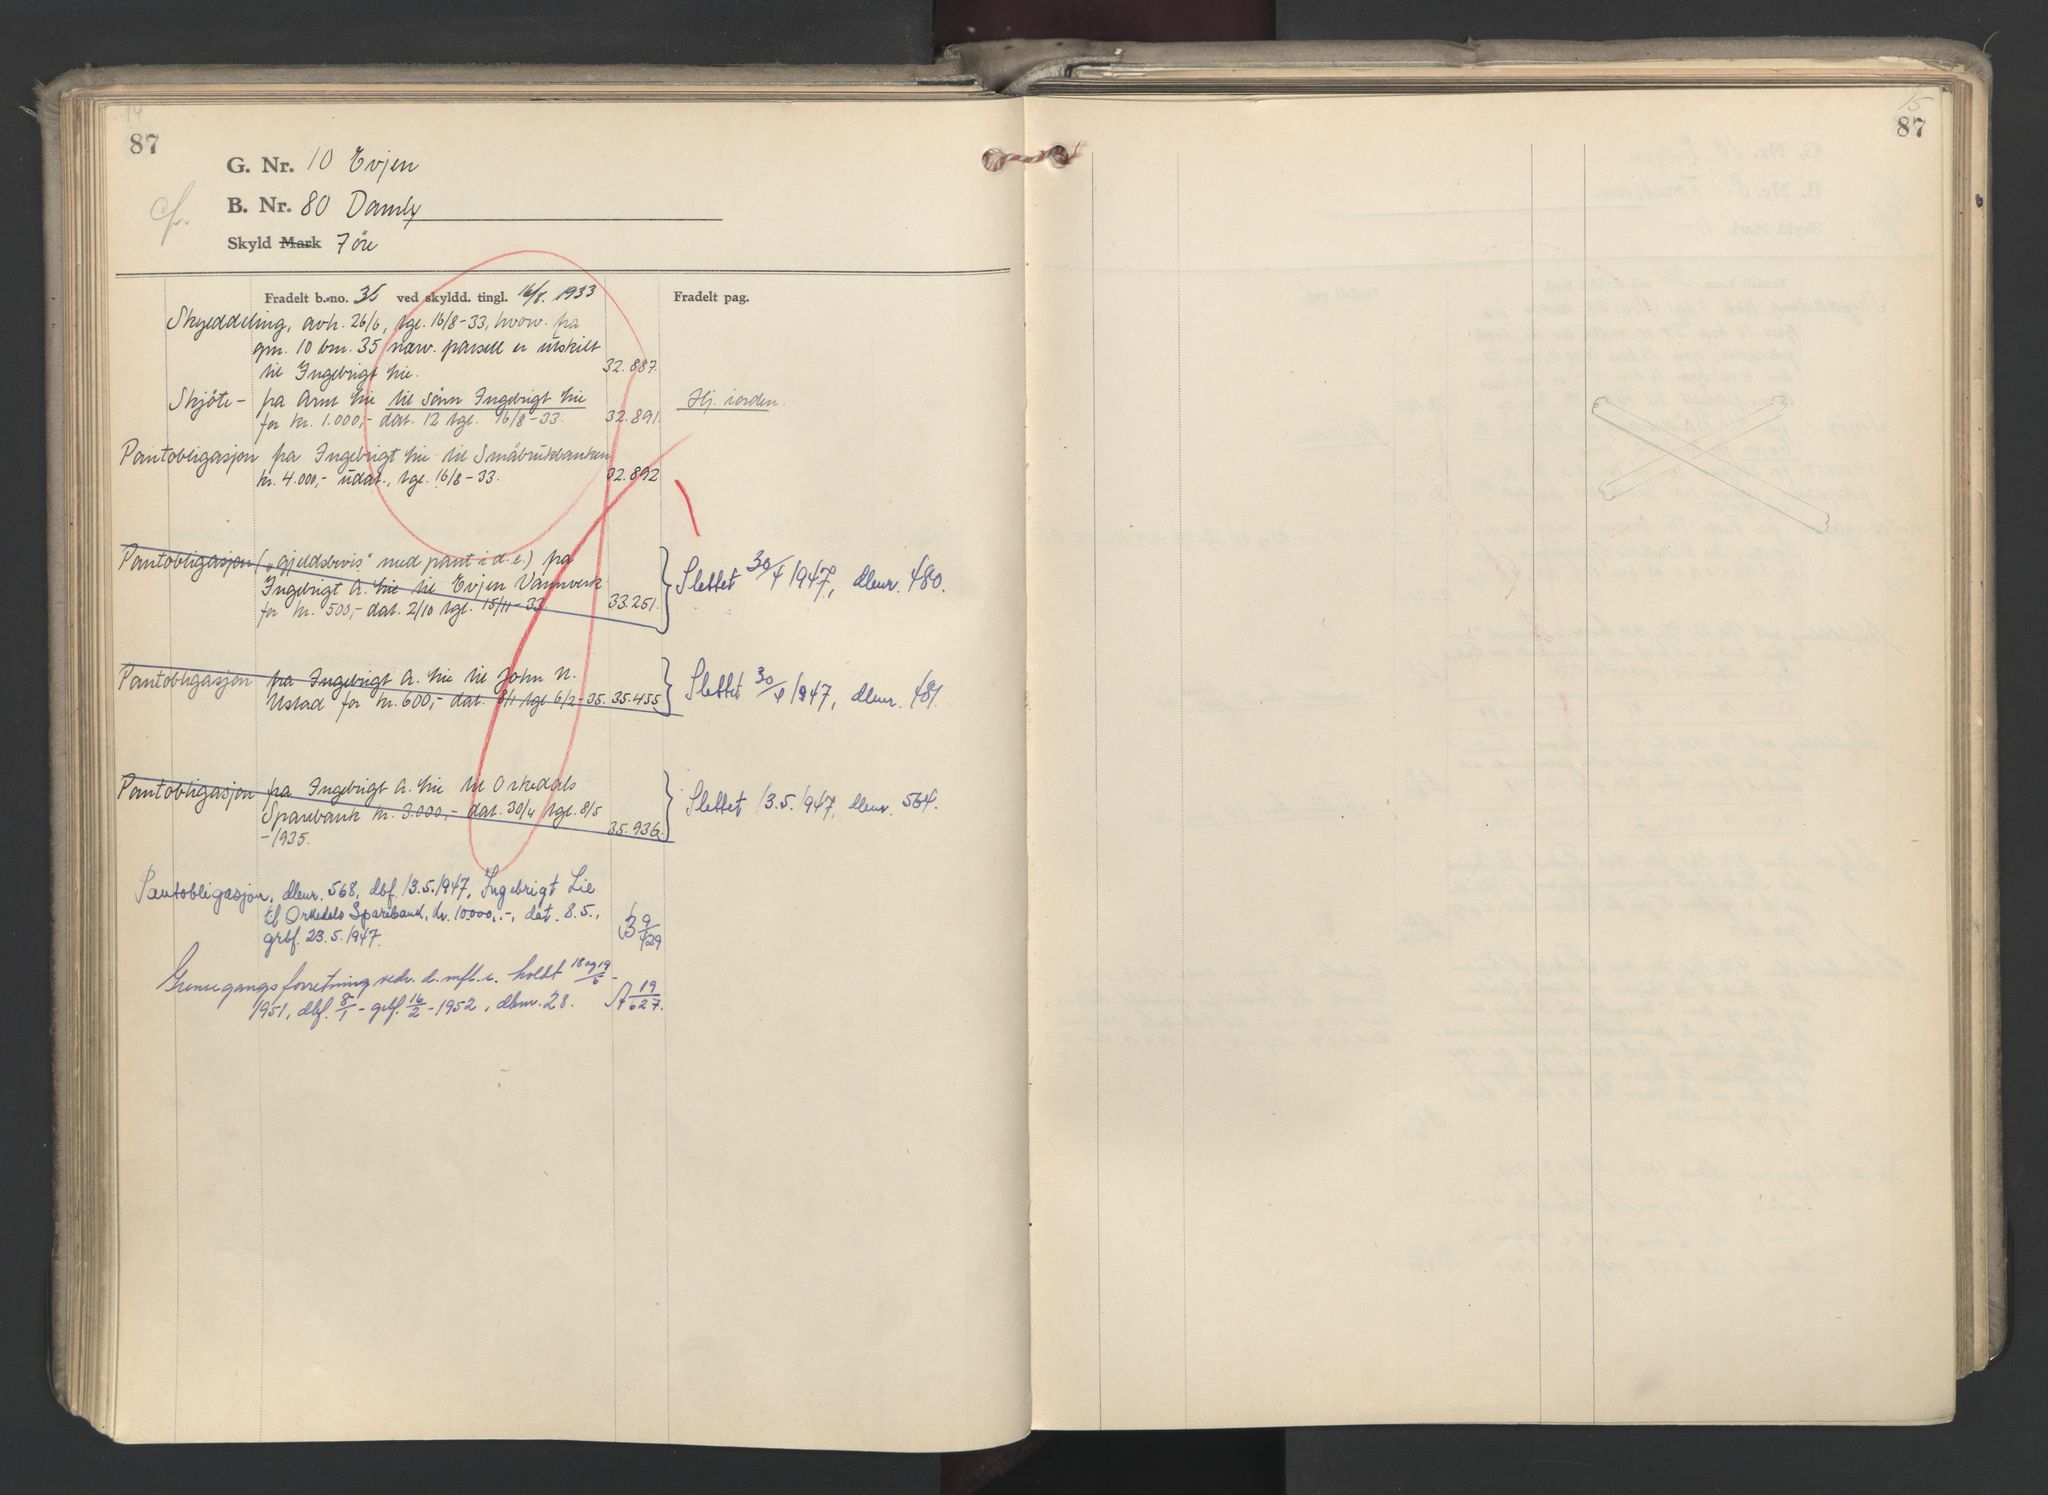 14
87
G. Nr. 10 Evjen
cfr.
B. Nr. 80 Damly
Skyld Mark 7 öre
Fradelt b.-no. 35 ved skyldd. tingl. 16/8. 1933
Fradelt pag.
Skylddeling, avh. 26/6, tgl. 16/8-33, hvorv. fra
gnr. 10 bnr. 35 nærv. parsell er utskilt
til Ingebrigt Lie. 32.887.
Skjöte - fra Arnt Lie til sönn Ingebrigt Lie
for kr. 1.000,- dat. 12 tgl. 16/8-33. 32.891. Hj. iorden.
Pantobligasjon fra Ingebrigt Lie til Småbrukbanken
kr. 4.000,- udat., tgl. 16/8-33. 32.892
Pantobligasjon („gjeldsbevis" med pant i d.e.) fra
Ingebrigt A. Lie til Evjen Vannverk
for kr. 500,- dat. 2/10 tgl. 15/11-33. 33.251.
Slettet 30/4 1947, dbnr. 480.
Pantobligasjon fra Ingebrigt A. Lie til John N.
Ustad for kr. 600,- dat. 8/1 tgl. 6/2-35. 35.455
Slettet 30/4 1947, dbnr. 481.
Pantobligasjon fra Ingebrigt A. Lie til Orkedals
Sparebank kr. 3.000,- dat. 30/4 tgl. 8/5
-1935. 35.936.
Slettet 13.5.1947, dbnr. 564.
Pantobligasjon, dbnr. 568, dbf. 13.5.1947, Ingebrigt Lie
til Orkedals Sparebank, kr. 10.000,-, dat. 8.5.,
grbf. 23.5.1947. B 9/429
Grensegangsforretning vedr. d. mfl. e. holdt 18 og 19/6 -
1951, dbf. 8/1 - grbf. 16/2 - 1952, dbnr. 28. A 19/627.
15
87